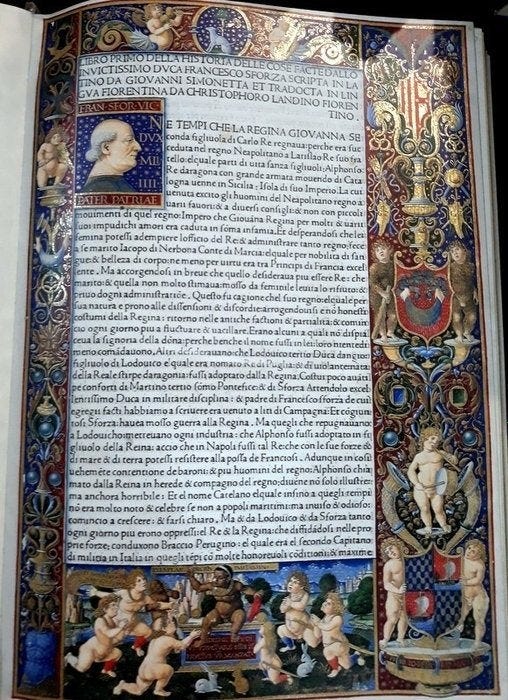 LIBRO PRIMO DELLA HISTORIA DELLE COSE FACTE DALLO
INVICTISSIMO DVCA FRANCESCO SFORZA SCRIPTA IN LA
TINO DA GIOVANNI SIMONETTA ET TRADOCTA IN LIN
GVA FIORENTINA DA CHRISTOPHORO LANDINO FIOREN
TINO.
FRAN·SFOR·VIC
DVX
MLI
IIII
PATER PATRIAE
E TEMPI CHE LA REGINA GIOVANNA SE
conda figliuola di Carlo Re regnaua: perche era suc
ceduta nel regno Neapolitano a Latislao Re suo fra
tello: elquale parti di uita sanza figliuoli: Alphonso
Re daragona con grande armata mouendo di Cata
logna uenne in Sicilia: Isola di suo Imperio. La cui
uenuta excito gli huomini del Neapolitano regno a
uarii fauori: & a diuersi consigli: & non con piccoli
mouimenti di quel regno: Impero che Giouana Regina per molti & ua
rii suoi impudichi amori era caduta in soma infamia. Et desperandosi che lei
femina potessi adempiere lofficio del Re: & administrare tanto regno: fece
a se marito Iacopo di Nerbona Conte di Marcia: elquale per nobilita di san
gue: & belleza di corpo: ne meno per uirtu era tra Principi di Francia excel
lente. Ma accorgendosi in breue che quello desideraua piu essere Re: che
marito: & quella non molto stimaua: mosso da feminile leuita lo rifiuto: &
priuo dogni administratione. Questo fu cagione chel suo regno: elquale per
sua natura e prono alle dissensioni & discordie: arrogendouisi e nó honesti
costumi della Regina: ritorno nelle antiche factioni & partialita: & comin
cio ogni giorno piu a fluctuare & uacillare. Erano alcuni a quali nó dispia
ceua la signoria della dóna: perche benche il nome fussi in lei: loro intendi
meno comandauono. Altri desiderauano che Lodouico tertio Duca dangio:
figliuolo di Lodouico elquale era nomato Re di Puglia: & di
della Reale stirpe daragonia: fussi adoptato dalla Regina. Costui poco auáti
pe conforti di Martino tertio sómo Pontefice: & di Sforza Attendolo excel
lentissimo Duca in militare disciplina: & padre di Francesco sforza de cui
egregii facti habbiamo a scriuere era uenuto a liti di Campagna: Et cógiun
tosi Sforza: hauea mosso guerra alla Regina. Ma quegli che repugnauano
a Lodouico: metteuano ogni industria: che Alphonso fussi adoptato in fi
gliuolo della Reina: accio che in Napoli fussi tal Re: che con sue forze &
di mare & di terra potessi resistere alla possa de Franciosi. Adunque in cosi
uehemête contentione de baroni: & piu huomini del regno: Alphonso chia
mato dalla Reina in herede & compagno del regno: diuéne nó solo illustre:
ma anchora horribile: Et el nome Catelano elquale infino a quegli tempi
nó era molto noto & celebre se non a popoli maritimi: ma inuiso & odioso:
comincio a crescere: & farsi chiaro. Ma & da Lodouico & da Sforza tanto
ogni giorno piu erono oppressi: el Re & la Regina: che diffidádosi nelle pro
prie forze: conduxono Braccio Perugino: el quale era el secondo Capitano
di militia in Italia in quegli tépi: có molte honoreuoli códitioni: & maxime